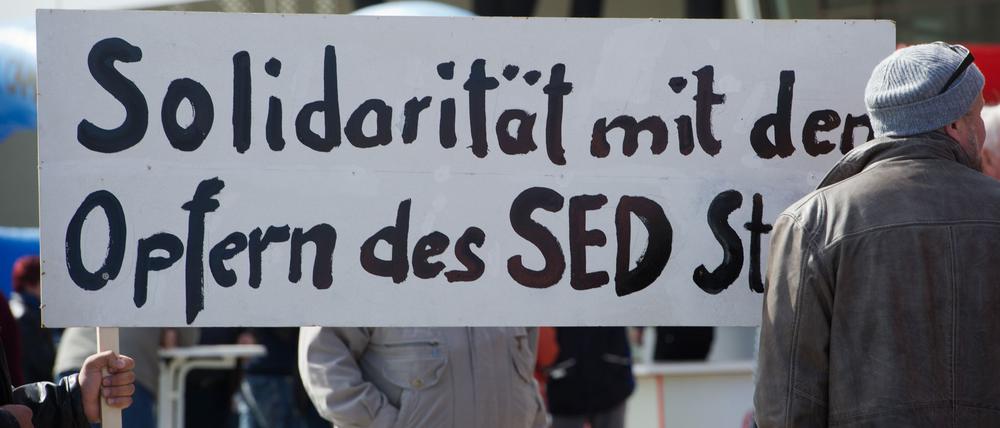 Solidarität mit den
Opfern des SED St